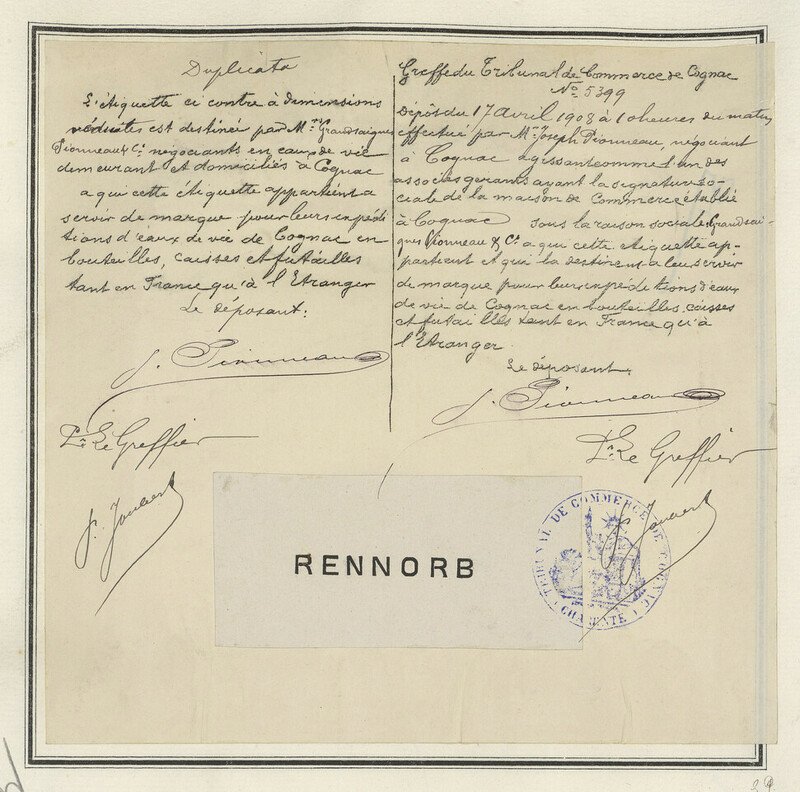 Duplicata
L'étiquette ci contre à dimensions
réduites est destinée par Mrs Grandsaignes
Pionneau & Cie négociants en eaux de vie
demeurant et domiciliés à Cognac
a qui cette étiquette appartient a
servir de marque pour leurs expédi
tions d'eaux de vie de Cognac en
bouteilles, caisses et futailles
tant en France qu'à l'Etranger
Le déposant:
J. Pionneau
Pr Le Greffier
J. Joubert
Greffe du Tribunal de Commerce de Cognac
No 5399
Dépôt du 17 avril 1908 à 10 heures du matin
effectué par Mr Joseph Pionneau, négociant
à Cognac agissant comme l'un des
associés gerants ayant la signature so-
ciale de la maison de Commerce établie
à Cognac sous la raison sociale Grandsai-
gnes Pionneau & Cie a qui cette étiquette ap-
partient et qui la destinent a leur servir
de marque pour leurs expéditions d'eaux
de vie de Cognac en bouteilles, caisses
et futailles tant en France qu'à
l'Etranger
Le déposant.
J. Pionneau
Pr Le Greffier
J. Joubert
RENNORB
TRIBUNAL DE COMMERCE DE COGNAC
CHARENTE